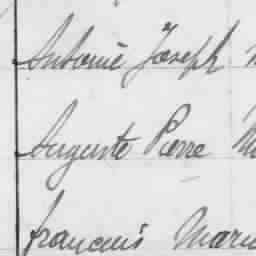 Antoine Joseph
Auguste Pierre
françcois Marie